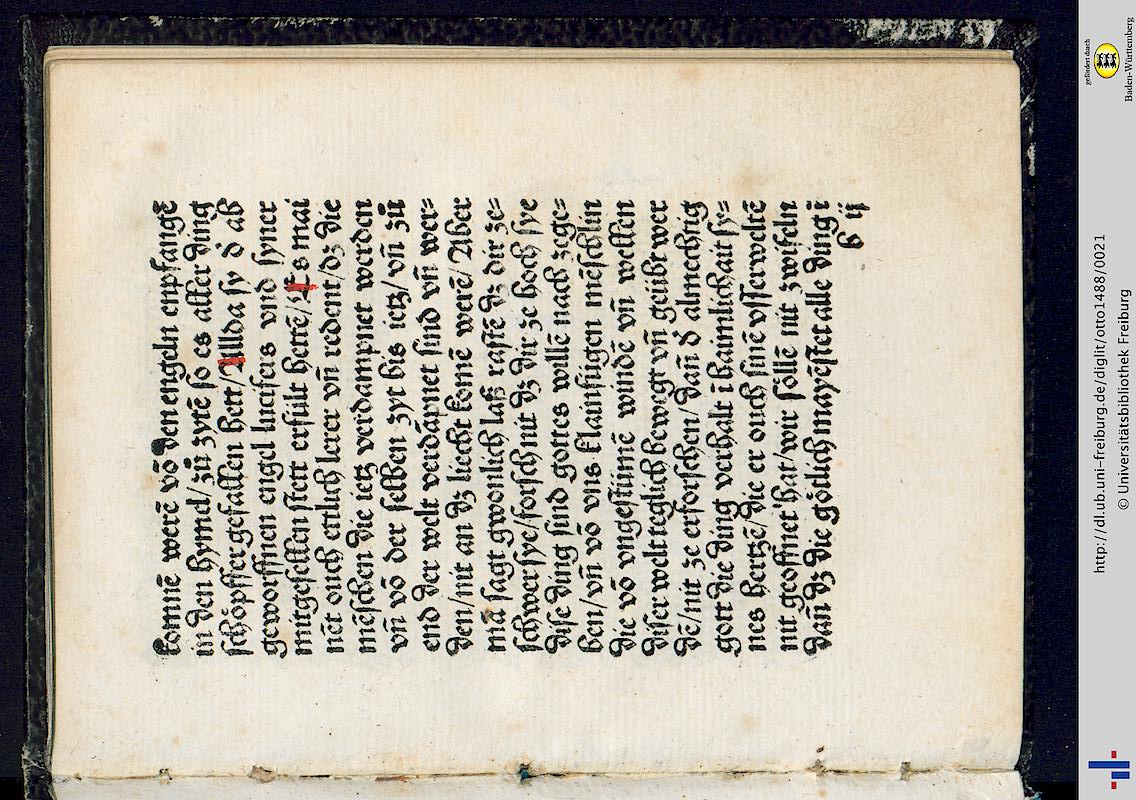 komnē werē vō den engeln enpfangē
in den hymel/zů zytē so es aller ding
schöpffer gefallen hett/Allda sy d̕ ab
geworffnen engel lucifers vnd syner
mitgesellen stett erfült hettē/Es mai
nēt ouch ettlich lerer vn̄ redent/dz die
mēschen die ietz verdampnet werden
vn̄ vō der selben zyt bis ietz/vn̄ zů
end der welt verdāpnet sind vn̄ wer⸗
den/nit an dz liecht komē werē/Aber
mā sagt gwonlich laß rastē dz dir ze⸗
schwer sye/forsch nit dz dir ze hoch sye
Dise ding sind gottes willē nach zege⸗
ben/vn̄ vō vns klainfügen mēschlin
die vō vngestümē windē vn̄ wellen
diser welt teglich bewegt vn̄ geübt wer
dē/nit ze erforschen/dan̄ d̕ almechtig
gott die ding verhalt ī haimlichait sy⸗
nes hertzē/die er ouch sinē vsserweltē
nit geoffnet hat/wir söllē nit zwifeln
dan̄ dz die götlich mayestet alle ding ī
b ij
gefördert durch
Baden-Württemberg
http://dl.ub.uni-freiburg.de/diglit/otto1488/0021
© Universitätsbibliothek Freiburg